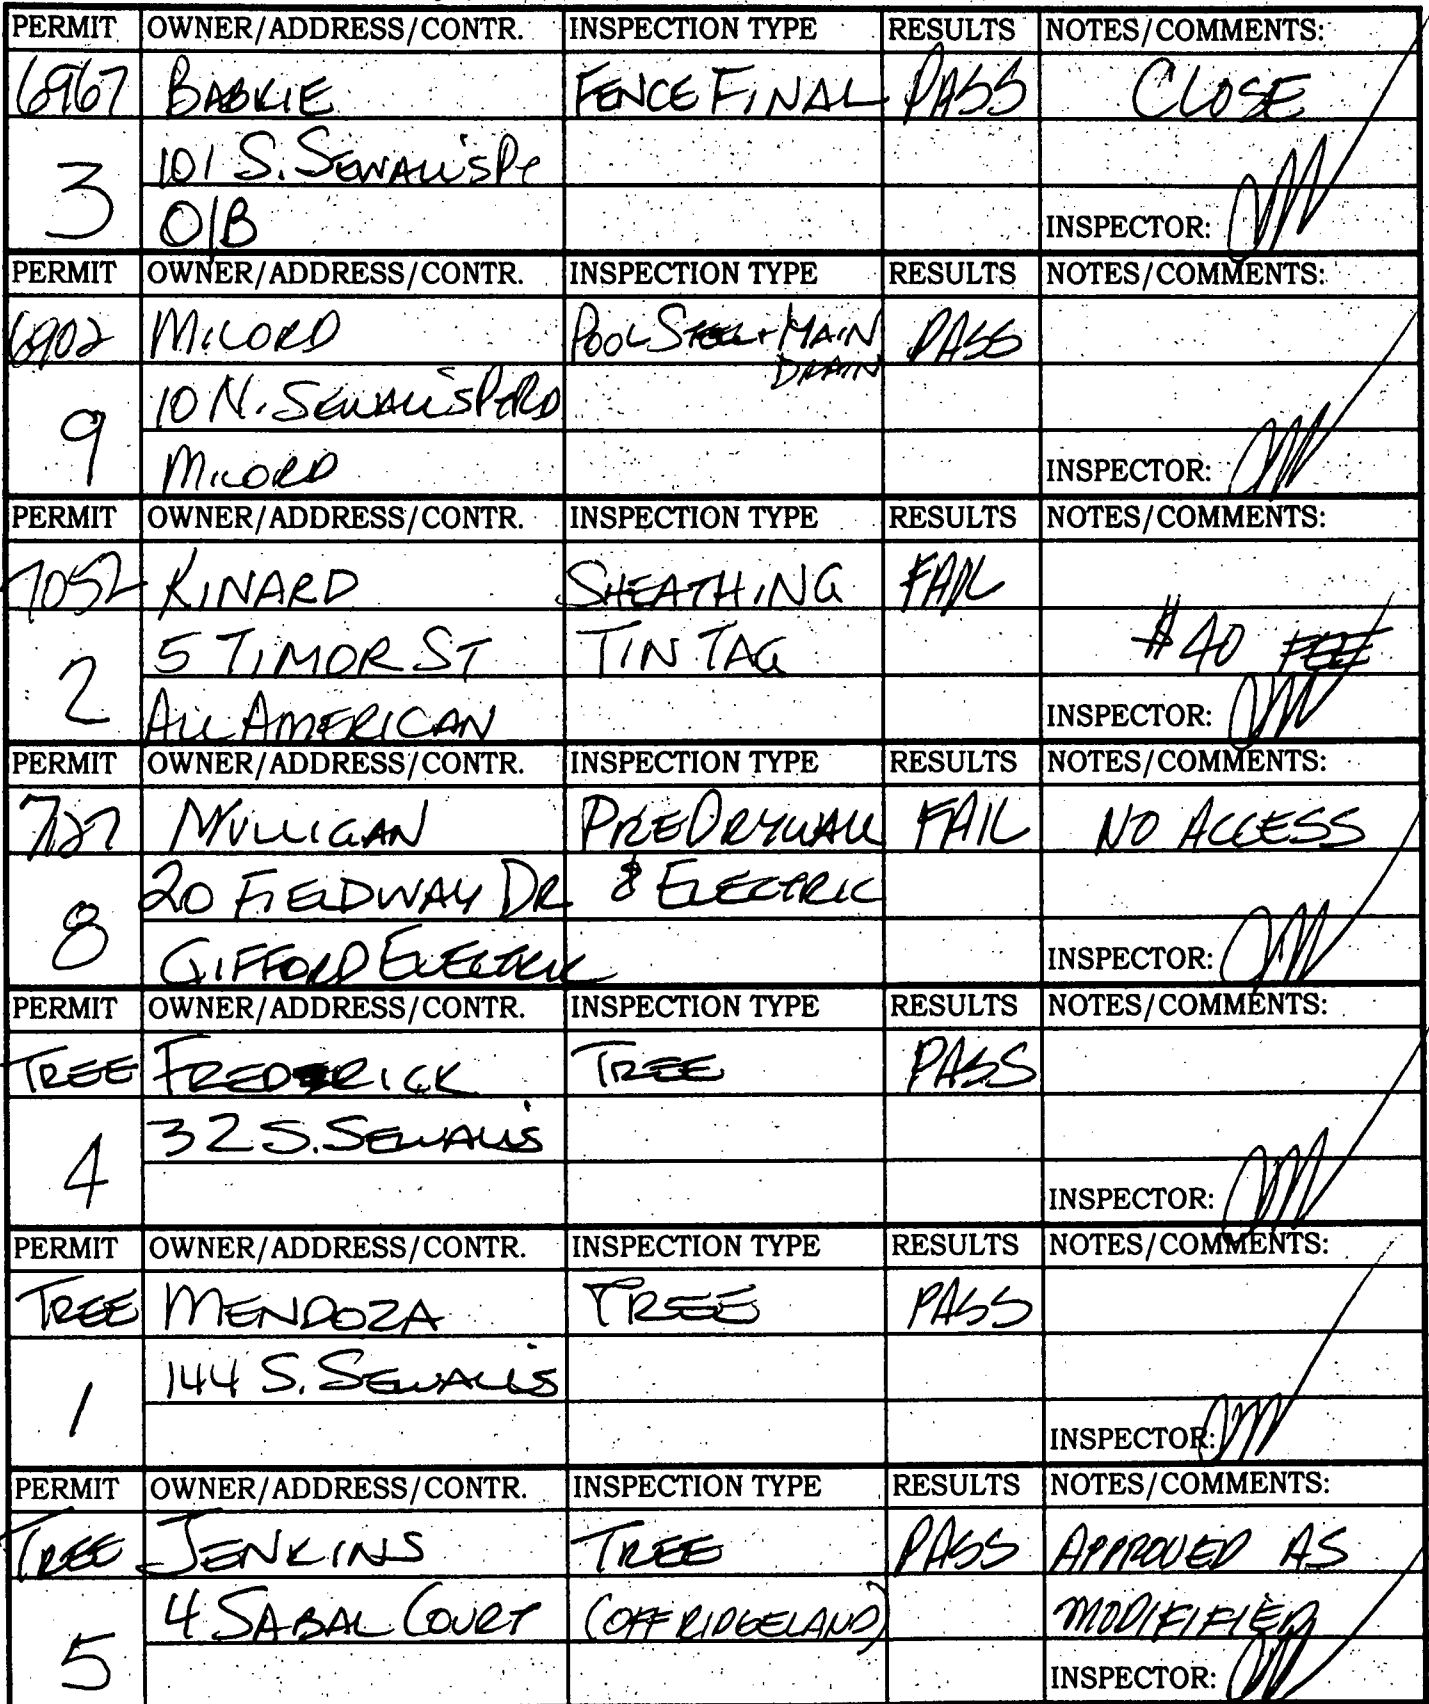 PERMIT OWNER/ADDRESS/CONTR. INSPECTION TYPE RESULTS NOTES/COMMENTS:
6967 BABKIE FENCE FINAL PASS CLOSE
101 S. SEWALL'S PT
3 O/B INSPECTOR:
PERMIT OWNER/ADDRESS/CONTR. INSPECTION TYPE RESULTS NOTES/COMMENTS:
6902 MILORD POOL STEEL + MAIN DRAIN PASS
10 N. SEWALL'S PT RD
9 MILORD INSPECTOR:
PERMIT OWNER/ADDRESS/CONTR. INSPECTION TYPE RESULTS NOTES/COMMENTS:
7052 KINARD SHEATHING FAIL
5 TIMOR ST TIN TAG $40 FEE
2 ALL AMERICAN INSPECTOR:
PERMIT OWNER/ADDRESS/CONTR. INSPECTION TYPE RESULTS NOTES/COMMENTS:
7127 MULLIGAN PREDRYWALL FAIL NO ACCESS
20 FIELDWAY DR & ELECTRIC
8 GIFFORD ELECTRIC INSPECTOR:
PERMIT OWNER/ADDRESS/CONTR. INSPECTION TYPE RESULTS NOTES/COMMENTS:
TREE FREDERICK TREE PASS
32 S. SEWALL'S
4 INSPECTOR:
PERMIT OWNER/ADDRESS/CONTR. INSPECTION TYPE RESULTS NOTES/COMMENTS:
TREE MENDOZA TREE PASS
144 S. SEWALL'S
1 INSPECTOR:
PERMIT OWNER/ADDRESS/CONTR. INSPECTION TYPE RESULTS NOTES/COMMENTS:
TREE JENKINS TREE PASS APPROVED AS
4 SABAL COURT (OFF RIDGELAND) MODIFIFIED
5 INSPECTOR: